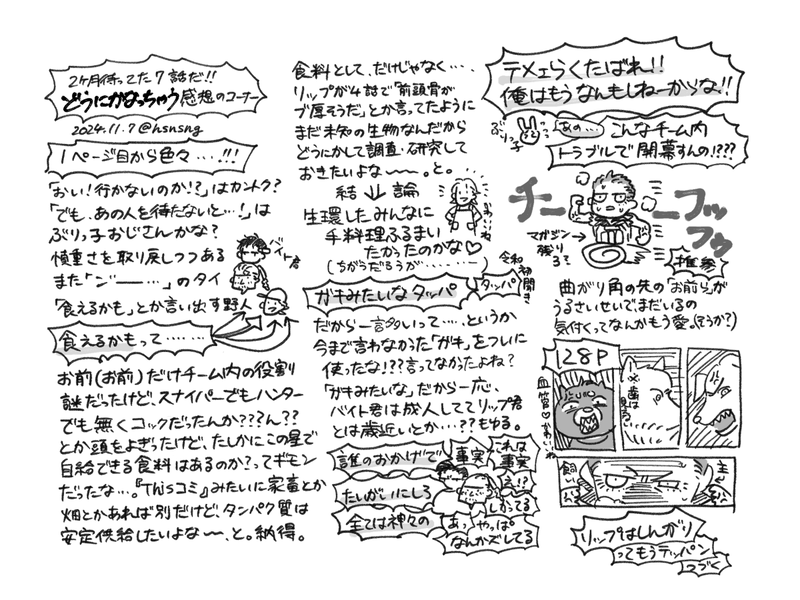 2ヶ月待ってた7話だ!!
どうにかなっちゃう感想のコーナー
2024.11.7 @hsnsng
1ページ目から色々…!!!
「おい!行かないのか!?」はカントク?
「でも、あの人を待たないと…!」は
ぶりっ子おじさんかな?
慎重さを取り戻しつつある
また「ジーー…」のタイ
バイト君
「食えるかも」とか言い出す野人
食えるかもって……
お前(お前)だけチーム内の役割
謎だったけど、スナイパーでもハンター
でも無くコックだったんか???ん??
とか頭をよぎったけど、たしかにこの星で
自給できる食料はあるのか?ってギモン
だったな…。『Thisコミ』みたいに家畜とか
畑とかあれば別だけど、タンパク質は
安定供給したいよな〜〜、と。納得。
食料として、だけじゃなく…、
リップが4話で「前頭骨が
ブ厚そうだ」とか言ってたように
まだ未知の生物なんだから
どうにかして調査・研究して
おきたいよな〜〜。と。
結↓論
生還したみんなに
手料理ふるまい
たかったのかな♡
(ちがうだろうが………)
かわいいね
ガキみたいなタッパ
タッパ
令和初聞き
だから一言多いって…、というか
今まで言わなかった「ガキ」をついに
使ったな!??言ってなかったよね?
「ガキみたいな」だから一応、
バイト君は成人しててリップ君
とは歳近いとか…??もゆる。
誰のおかげで
事実
これは事実
たいがいにしろ
え!?
しかってる
全ては神々の
あっ、やっぱ
なんかズレてる
テメェらくたばれ!!
俺はもうなんもしねーからな!!
ぶりっ子
あの…
こんなチーム内
トラブルで開幕すんの!???
チーーフッッフゥ
マガジン
残り3?
推参
曲がり角の先の「お前ら」が
うるさいせいで、まだいるの
気付くってなんかもう愛。(そうか?)
128P
血管♡かわいいね
※歯は見える?
主し
飼い
リップはしんがり
ってもうテッパン
つづく